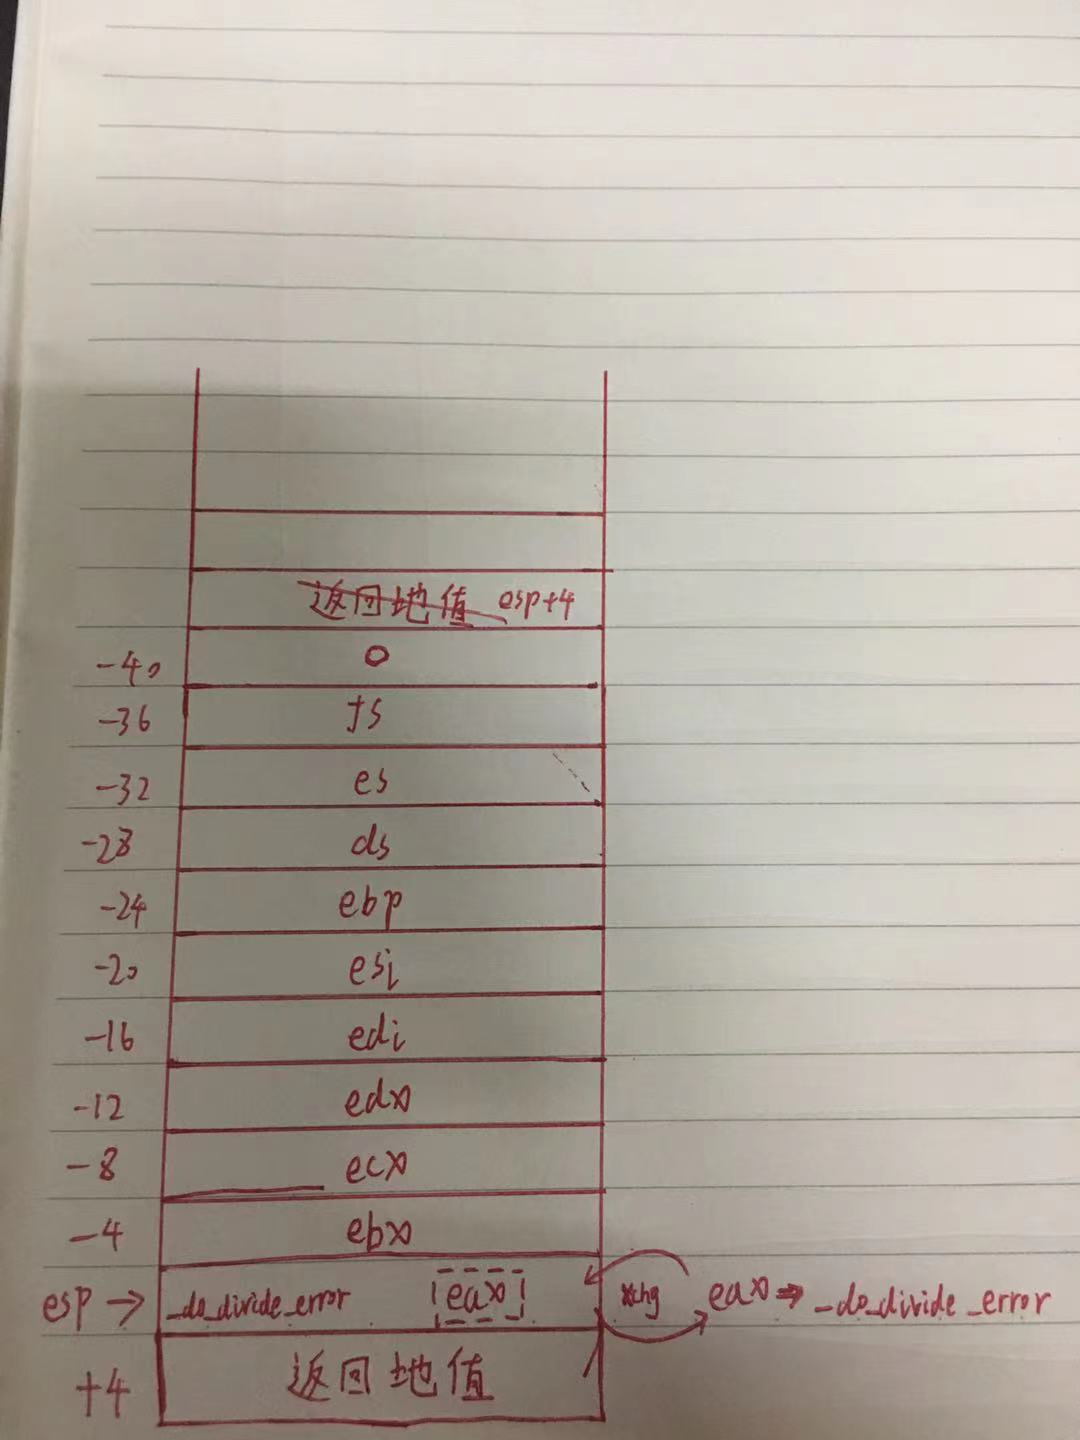 返回地值 esp+4
-40 0
-36 fs
-32 es
-28 ds
-24 ebp
-20 esi
-16 edi
-12 edx
-8 ecx
-4 ebx
esp → _do_divide_error eax xchg eax ⇒ _do_divide_error
+4 返回地值